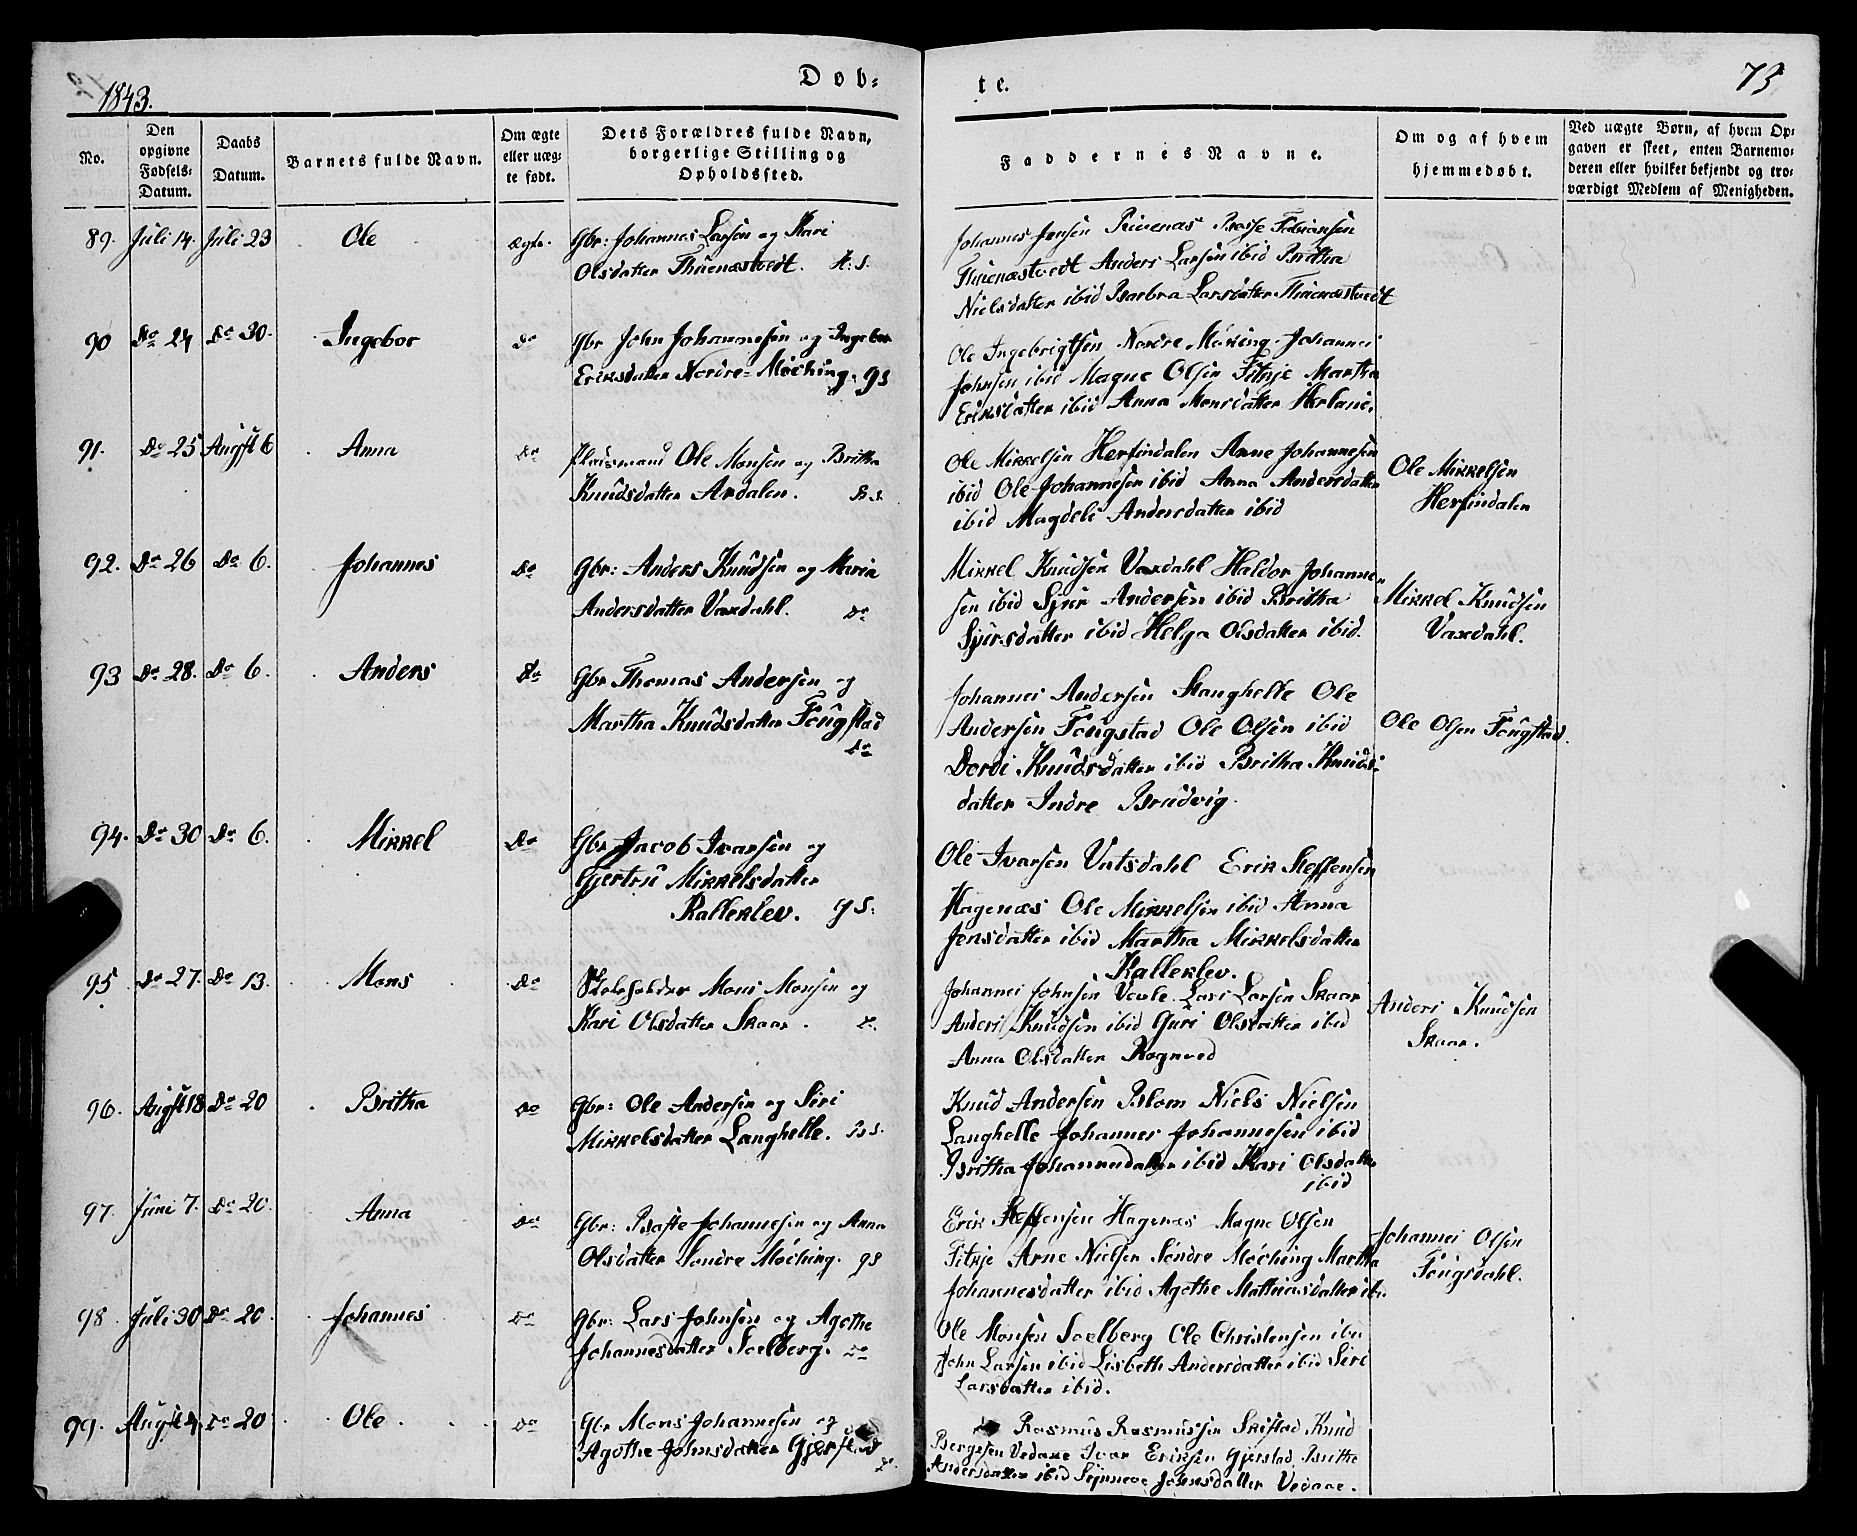 1843.
Døb-
te.
73
No.
Den opgivne Fødsels-Datum.
Daabs Datum.
Barnets fulde Navn.
Om ægte eller uæg-te født.
Dets Forældres fulde Navn, borgerlige Stilling og Opholdssted.
Faddernes Navne.
Om og af hvem hjemmedøbt.
Ved uægte Børn, af hvem Op-gaven er skeet, enten Barnemo-deren eller hvilket bekjendt og tro-værdigt Medlem af Menigheden.
89. Juli 14. Juli 23 Ole ægte. Gbr: Johannes Larsen og Kari
Olsdatter Thuenæstvedt. H.S.
Johannes Jensen
Thuenæstvedt Anders Larsen ibid Britha
Nielsdatter ibid Barbra Larsdatter Thuenæstvedt
90 Do 24 Do 30. Ingebor Do Gbr John Johannesen og Ingebor
Eriksdatter Nordre-Møching. GS
Ole Ingebrigtsen Nordre Møking Johannes
Johnsen ibid Magne Olsen Fitkje Martha
Eriksdatter ibid Anna Monsdatter Herland.
91. Do 25 Augst 6 Anna Do Pladsmand Ole Monsen og Britha
Knudsdatter Ardalen. B.S.
Ole Mikkelsen Herfindalen Anne Johannesen
ibid Ole Johannesen ibid Anna Andersdatter
ibid Magdeli Andersdatter ibid
Ole Mikkelsen
Herfindalen
92. Do 26 Do 6. Johannes Do Gbr: Anders Knudsen og Maria
Andersdatter Vaxdahl. Do
Mikkel Knudsen Vaxdahl Haldor Johanne-
sen ibid Sjur Andersen ibid Britha
Sjursdatter ibid Helga Olsdatter ibid.
Mikkel Knudsen
Vaxdahl.
93 Do 28. Do 6. Anders Do Gbr Thomas Andersen og
Martha Knudsdatter Fougstad
Do
Johannes Andersen Stanghelle Ole
Andersen Fougstad Ole Olsen ibid
Dordi Knudsdatter ibid Britha Knuds-
datter Indre Brudvig.
Ole Olsen Fougstad.
94. Do 30 Do 6. Mikkel Do Gbr Jacob Ivarsen og
Gjertru Mikkelsdatter
Kalleklev. GS.
Ole Ivarsen Vatsdahl Erik Steffensen
Hagenæs Ole Mikkelsen ibid Anna
Jensdatter ibid Martha Mikkelsdatter
Kalleklev.
95 Do 27. Do 13. Mons Do Skoleholder Mons Monsen og
Kari Olsdatter Skaar. Do
Johannes Johnsen Veule. Lars Larsen Skaar
Anders Knudsen ibid Guri Olsdatter ibid
Anna Olsdatter
Anders Knudsen
Skaar.
96. Augst 18 Do 20 Britha Do Gbr: Ole Andersen og Siri
Mikkelsdatter Langhelle. B.S.
Knud Andersen Blom Niels Nielsen
Langhelle Johannes Johannesen ibid
Britha Johannesdatter ibid Kari Olsdatter
ibid
97. Juni 7. Do 20. Anna Do Gbr: Basse Johannesen og Anna
Olsdatter Søndre Møching. GS
Erik Steffensen Hagenæs Magne Olsen
Fitkje Arne Nielsen Søndre Møching Martha
Johannesdatter ibid Agothe Mathiasdatter ib.
Johannes Olsen
Fougsdahl.
98. Juli 30 Do 20. Johannes Do Gbr: Lars Johnsen og Agothe
Johannesdatter Soelberg. Do
Ole Monsen Soelberg Ole Christensen ibid
John Larsen ibid Lisbeth Andersdatter ibid Siri
Larsdatter ibid.
99. Augst 4. Do 20 Ole Do Gbr Mons Johannesen og
Agothe Johnsdatter Gjerstad
Do
Rasmus Rasmussen Skistad Knud
Bergesen Vedaae Ivar Eriksen Gjerstad Brithe
Andersdatter ibid Synneve Johnsdatter Vedaae.